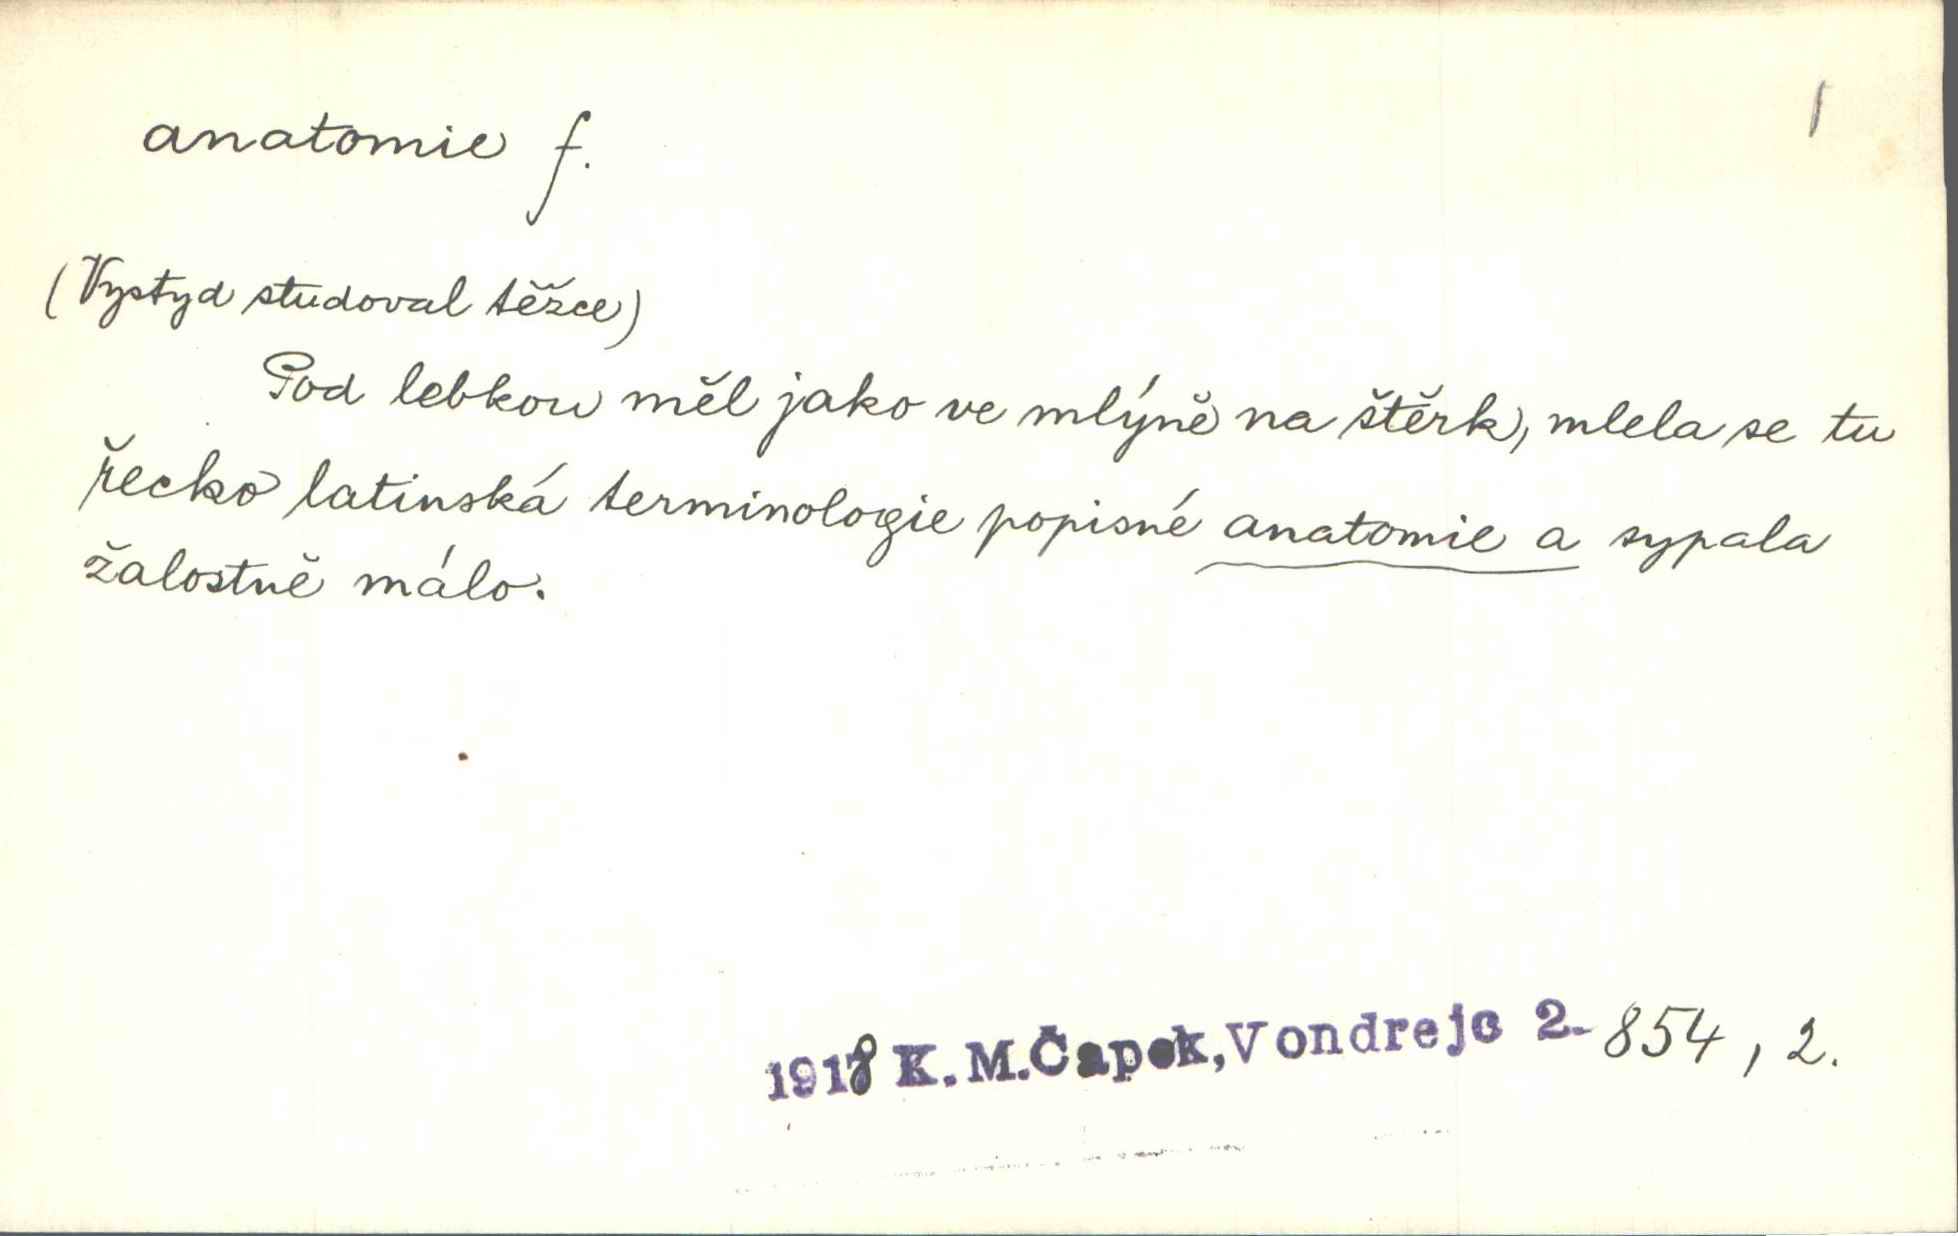 1
anatomie f.
(Vystyd studoval těžce)
Pod lebkou měl jako ve mlýně na štěrk, mlela se tu
řecko latinská terminologie popisné anatomie a sypala
žalostně málo.
1918 K. M. Čapek, Vondrejc 2-854, 2.